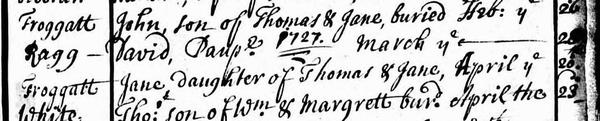 Froggatt John, son of Thomas & Jane, buried Feb: yᵉ 26
1727.
Ragg – David, Paupʳ March yᵉ
Froggatt Jane daughter of Thomas & Jane, April yᵉ 20
White Thoˢ son of Wm & Margrett burᵈ April the 23